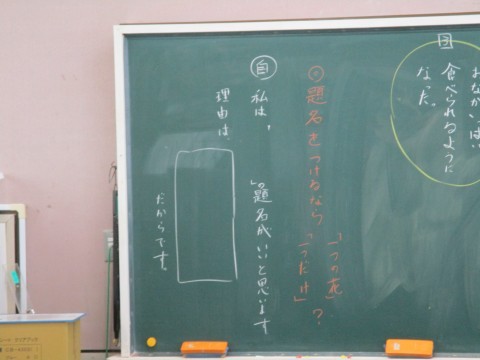 子
おなかいっぱい
食べられるように
なった。
◎題名をつけるなら「一つの花」
「一つだけ」?
自
私は、
」の題名がいいと思います
理由は
だからです。